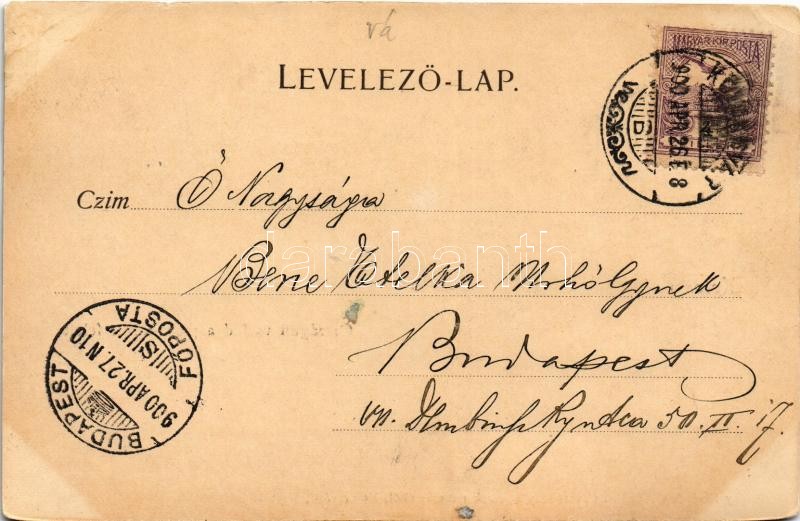 vá
LEVELEZŐ-LAP.
MAGYAR KIR. POSTA
900 APR. 26 E. 8
Czim Ő Nagysága
Bene Etelka Urhölgynek
darabanth
Budapest
BUDAPEST
900 APR. 27. N10
S
FŐPOSTA
VII. Dembinszky utca 50. II. 17.